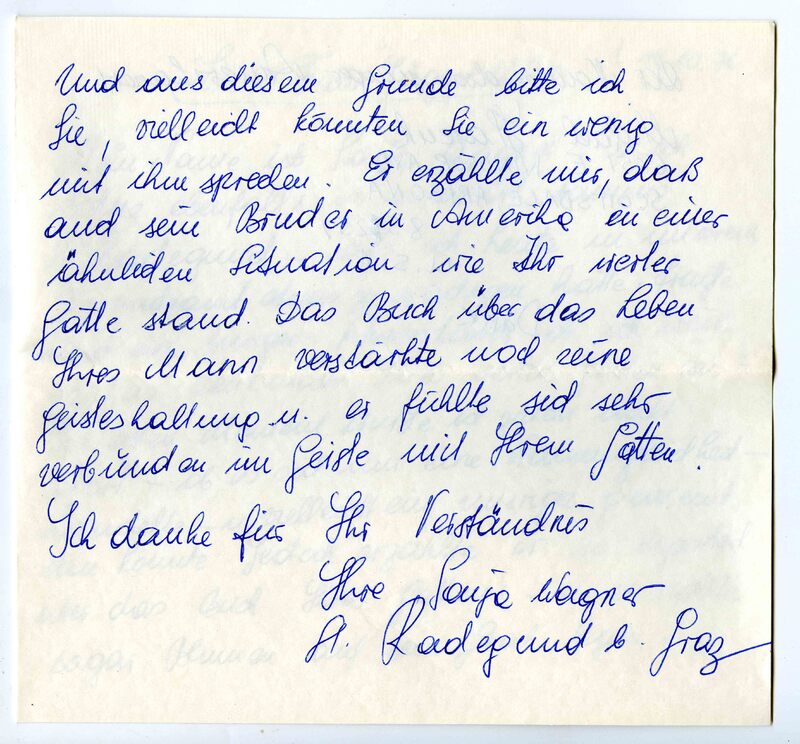 Und aus diesem Grunde bitte ich
Sie, vielleicht könnten Sie ein wenig
mit ihm sprechen. Er erzählte mir, daß
auch sein Bruder in Amerika in einer
ähnlichen Situation wie Ihr werter
Gatte stand. Das Buch über das Leben
Ihres Mann verstärkte noch seine
Geisteshaltung u. er fühlte sich sehr
verbunden im Geiste mit Ihrem Gatten.
Ich danke für Ihr Verständnis
Ihre Sonja Wagner
St. Radegund b. Graz